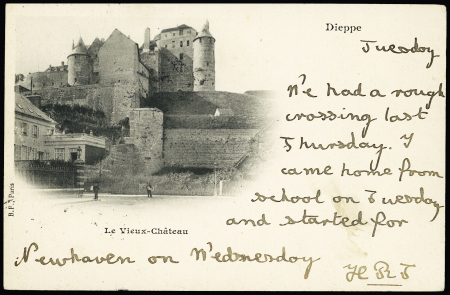 Dieppe
Tuesday
We had a rough
crossing last
Thursday. I
came home from
school on Tuesday
and started for
Newhaven on Wednesday
H.R.T
Le Vieux-Château
B. F., Paris